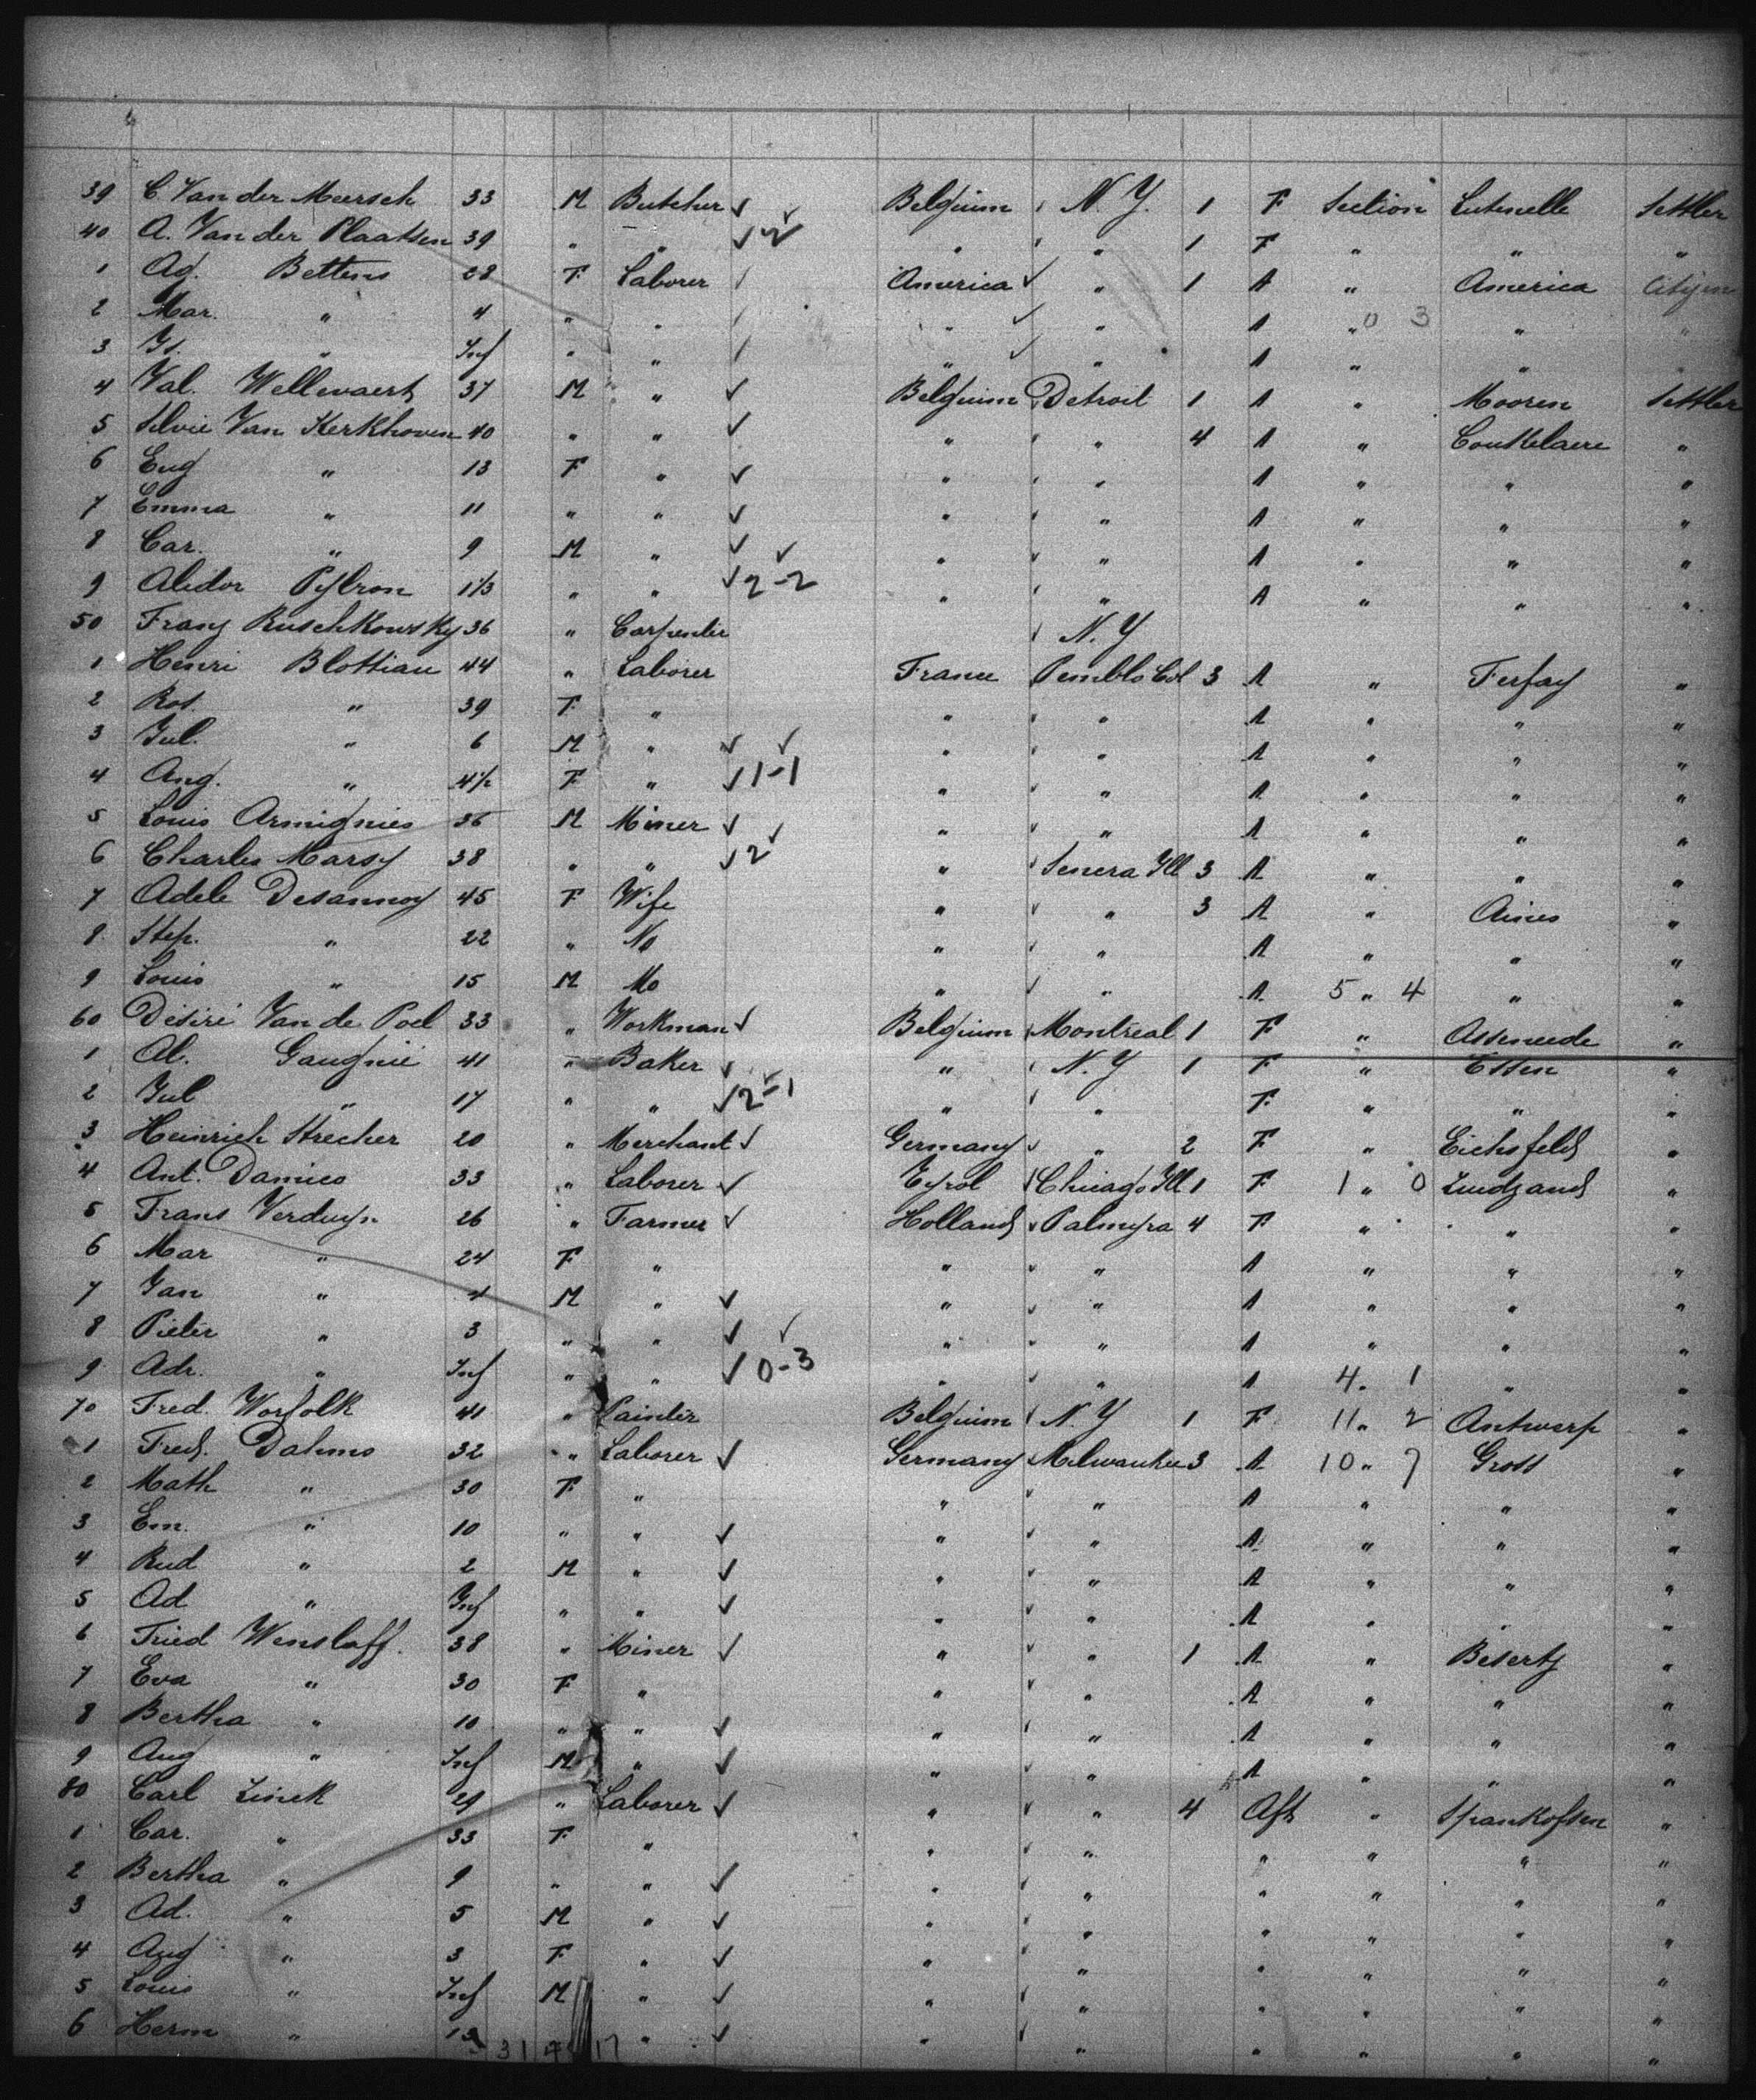 39 C. Van der Meersch 33 M Butcher ✓ Belgium N.Y. 1 F Section Settler
40 A. Van der Plaatsen 39 " " ✓ 2 " " 1 F " " "
1 Ad. Bettens 28 F Laborer America ✓ " 1 A " America Citizen
2 Mar. " 4 " " " ✓ " A " 0 3 " "
3 " Inf " " " ✓ " A " " "
4 Val. Wellevaert 37 M " ✓ Belgium Detroit 1 A " Mooren Settler
5 Silvie Van Kerkhoven 40 " " ✓ " " 4 A " "
6 Eug " 13 F " ✓ " " A " " "
7 Emma " 11 " " ✓ " " A " " "
8 Car. " 9 M " ✓ " " A " " "
9 Alidor 1 1/3 " " ✓ 2-2 " " A " " "
50 Franz Ruschkowsky 36 " Carpenter N.Y
1 Henri Blottiau 44 " Laborer France Col 3 A " Ferfay "
2 Ros. " 39 F " " " A " " "
3 Jul. " 6 M " ✓ " " A " " "
4 Aug. " 4 1/2 F " ✓ 1-1 " " A " " "
5 Louis Armignies 36 M Miner ✓ " " A " " "
6 Charles Marsy 38 " " ✓ 2 " Ill 3 A " " "
7 Adele Desannoy 45 F Wife " " 3 A " "
8 Step. " 22 " No " " A " " "
9 Louis " 15 M " " A 5 " 4 " "
60 Désiré Van de Poel 33 " Workman ✓ Belgium Montreal 1 F " Assenede "
1 Al. Gaugnie 41 " Baker ✓ " N.Y 1 F " Essen "
2 Jul " 17 " " ✓ 2-1 " " F " " "
3 Heinrich Strecker 20 " Merchant ✓ Germany " 2 F " Eichsfeld "
4 Ant. Damico 33 " Laborer ✓ Tyrol Chicago Ill 1 F 1 " 0 "
5 Frans Verduyn 26 " Farmer ✓ Holland Palmyra 4 F " " "
6 Mar " 24 F " " " A " " "
7 Jan " 4 M " ✓ " " A " " "
8 Pieter " 3 " " ✓ " " A " " "
9 Adr. " Inf " " ✓ 0-3 " " A 4 " 1 " "
70 Fred. Worfolk 41 " Painter Belgium N.Y 1 F 11 " 2 Antwerp "
1 Fred. Dahms 32 " Laborer ✓ Germany Milwaukee 3 A 10 " 7 "
2 Math " 30 F " " " A " " "
3 Em. " 10 " " ✓ " " A " " "
4 Rud " 2 M " ✓ " " A " " "
5 Ad " Inf " " ✓ " " A " " "
6 Fried Wenslaff. 38 " Miner ✓ " " 1 A " "
7 Eva " 30 F " " " A " " "
8 Bertha " 10 " " ✓ " " A " " "
9 Aug " Inf M " ✓ " " A " " "
80 Carl Zinck 29 " Laborer ✓ " " 4 Aft " "
1 Car. " 33 F " " " " " " "
2 Bertha " 9 " " ✓ " " " " " "
3 Ad. " 5 M " ✓ " " " " " "
4 Aug " 3 F " ✓ " " " " " "
5 Louis " Inf M " ✓ " " " " " "
6 Herm " " ✓ " " " " " "